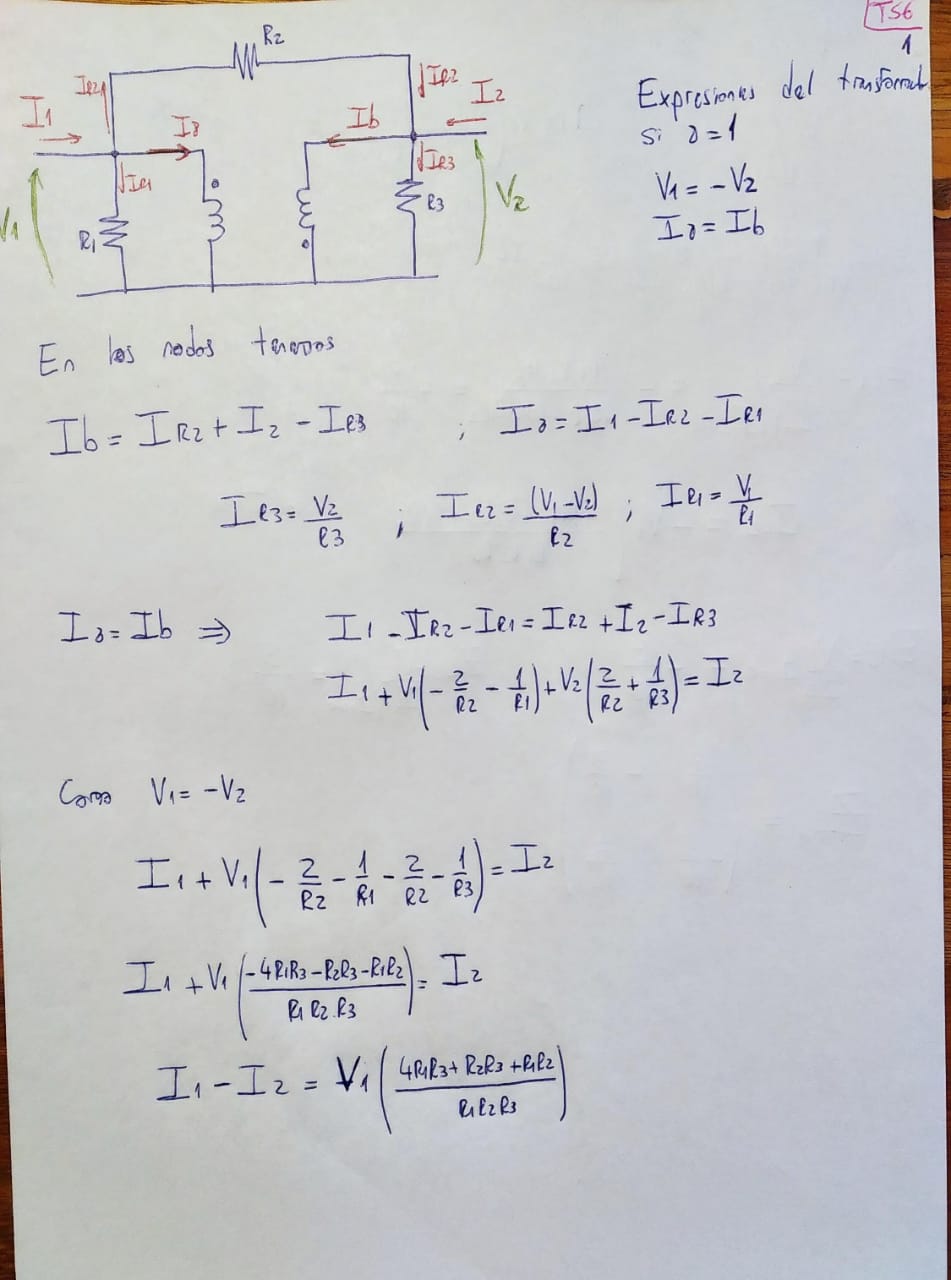 TS6
1
R2
IR2
IR2
I1
I2
Ia
Ib
IR1
IR3
R1
R3
V1
V2
Expresiones del transformador
si a=1
V1 = -V2
Ia = Ib
En los nodos tenemos
Ib = IR2 + I2 - IR3 ; Ia = I1 - IR2 - IR1
IR3 = V2/R3 ; IR2 = (V1-V2)/R2 ; IR1 = V1/R1
Ia = Ib ⇒ I1 - IR2 - IR1 = IR2 + I2 - IR3
I1 + V1(-2/R2 - 1/R1) + V2(2/R2 + 1/R3) = I2
Como V1 = -V2
I1 + V1(-2/R2 - 1/R1 - 2/R2 - 1/R3) = I2
I1 + V1((-4R1R3 - R2R3 - R1R2)/(R1 R2 . R3)) = I2
I1 - I2 = V1((4R1R3 + R2R3 + R1R2)/(R1R2R3))